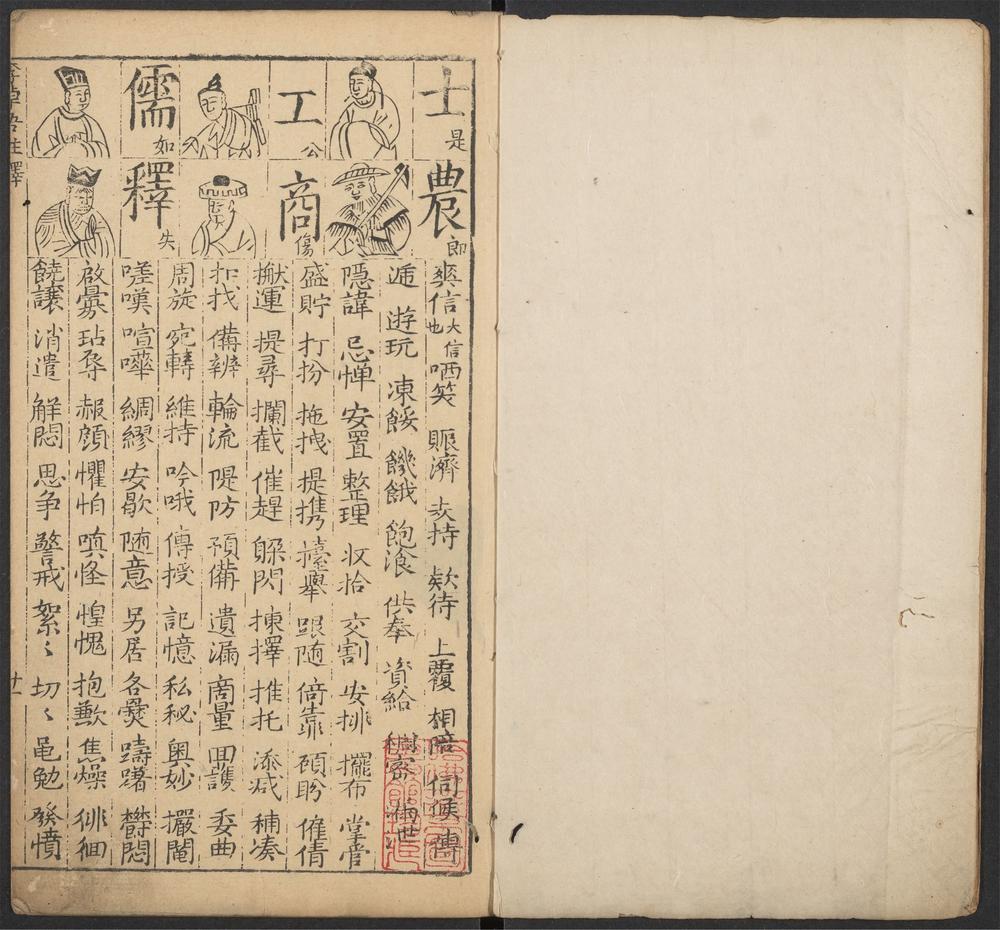 士 是
農 即
工 公
商 傷
儒 如
釋 失
爽信 大信也 哂笑 賑濟 支持 欵待 上覆 相陪 伺候 傳
遞 遊玩 凍餒 饑餓 飽飡 供奉 資給 稠密
隱諱 忌憚 安置 整理 収拾 交割 安排 擺布 掌管
盛貯 打扮 拖拽 提携 擡舉 跟隨 倚靠 頋盼 僱倩
搬運 提尋 攔截 催趕 躲閃 揀擇 推托 添减 補凑
扣找 備辦 輪流 隄防 預備 遺漏 啇量 囬護 委曲
周旋 宛轉 維持 吟哦 傳授 記憶 私秘 奥妙
嗟嘆 喧嘩 綢繆 安歇 隨意 另居 各爨 躊躇 欝悶
啟釁 玷辱 赧顔 懼怕 嗔怪 惶愧 抱歉 焦燥 徘徊
饒讓 消遣 觧悶 思爭 警戒 絮〻 切〻 黽勉 發憤
李卓吾註釋
十一